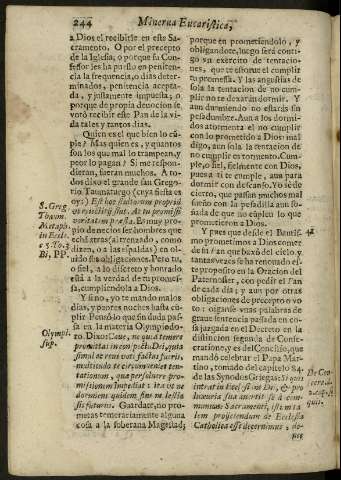 244 Minerva Eucaristica,
à Dios el recibirle en este Sa-
cramento. O por el precepto
de la Iglesia; o porque su Con-
fessor les ha puesto en peniten-
cia la frequencia, o dias deter-
minados, penitencia acepta-
da, y justamente impuesta; o
porque de propia devocion se
votò recibir este Pan de la vi-
da tales y tantos dias.
Quien es el que bien lo cũ-
ple? Mas quien es, y quantos
son los que mal lo trampean, y
peor lo pagan? Si me respon-
dieran, fueran muchos. A to-
dos dixo el grande san Grego-
rio Taumaturgo (cuya fiesta es
oy:) Est hoc stultorum propriũ
et
At tu promissi
veritatem præsta. Es muy pro-
pio de necios ser hombres que
echã atras (ai trenzado, como
dizen, o a las espaldas) en ol-
uido sus obligaciones. Pero tu,
o fiel, a lo discreto y honrado
està a la verdad de tu promes-
sa, cumpliendola a Dios.
Y sino, yo te mando malos
dias, y peores noches hasta cũ-
plir. Pensò lo que sin duda pas-
sa en la materia Olympiodo-
ro. Dixo: Cave, ne quid temere
promittas in conspectu Dei, quia
simul te reum voti factus fueris,
multitudo te circumdet ten-
tationum, qua persolvere pro-
missionem impediat: ita ut ne
dormiens quidem sine molestia
sis futurus. Guardate, no pro-
metas temerariamente alguna
cosa a la soberana Magestad;
S. Greg.
Thaum.
Metaph.
in Eccle.
c. 5. To. 3
Bi. PP.
Olympi.
sup.
porque en prometiendolo, y
obligandote, luego serà conti-
go vn exercito de tentacio-
nes, que te estorue el cumplir
tu promessa. Y las angustias de
sola la tentacion de no cum-
plir no te dexaràn dormir. Y
aun durmiendo no estaràs sin
pesadumbre. Aun a los dormi-
dos atormenta el no cumplir
con lo prometido a Dios: mas
al que duerme, aun la tentacion
de no cumplir es tormento. Cum-
ple, o fiel, fielmente con Dios,
buena ti te cumple, aun para
dormir con descanso. Yo sè de
cierto, que passan muchos mal
sueño con la pesadilla aun so-
ñada de que no cũplen lo que
prometieron a Dios.
Y pues que desde el Bautis-
mo prometimos a Dios comer
de su Pan que baxò del cielo, y
tantas vezes se ha renouado es-
te proposito en la Oracion del
Paternoster, con pedir el Pan
de cada dia; y aun por otras
obligaciones de precepto o vo-
to: oiganse vnas palabras de
graue sentencia passada en co-
sa juzgada en el Decreto en la
distincion segunda de Conse-
cratione, y es del Concilio, que
mandò celebrar el Papa Mar-
tino, tomado del capitulo 84.
de las Synodos Griegas: Si quis
intrat in Ecclesiam Dei, & pro
luxuria sua auertit se à com-
munione Sacramenti, ista mala
lem projiciendum de Ecclesia
Catholica esse decernimus, do-
nec
42
De Con-
secr. d.
2. cap. si
quis.